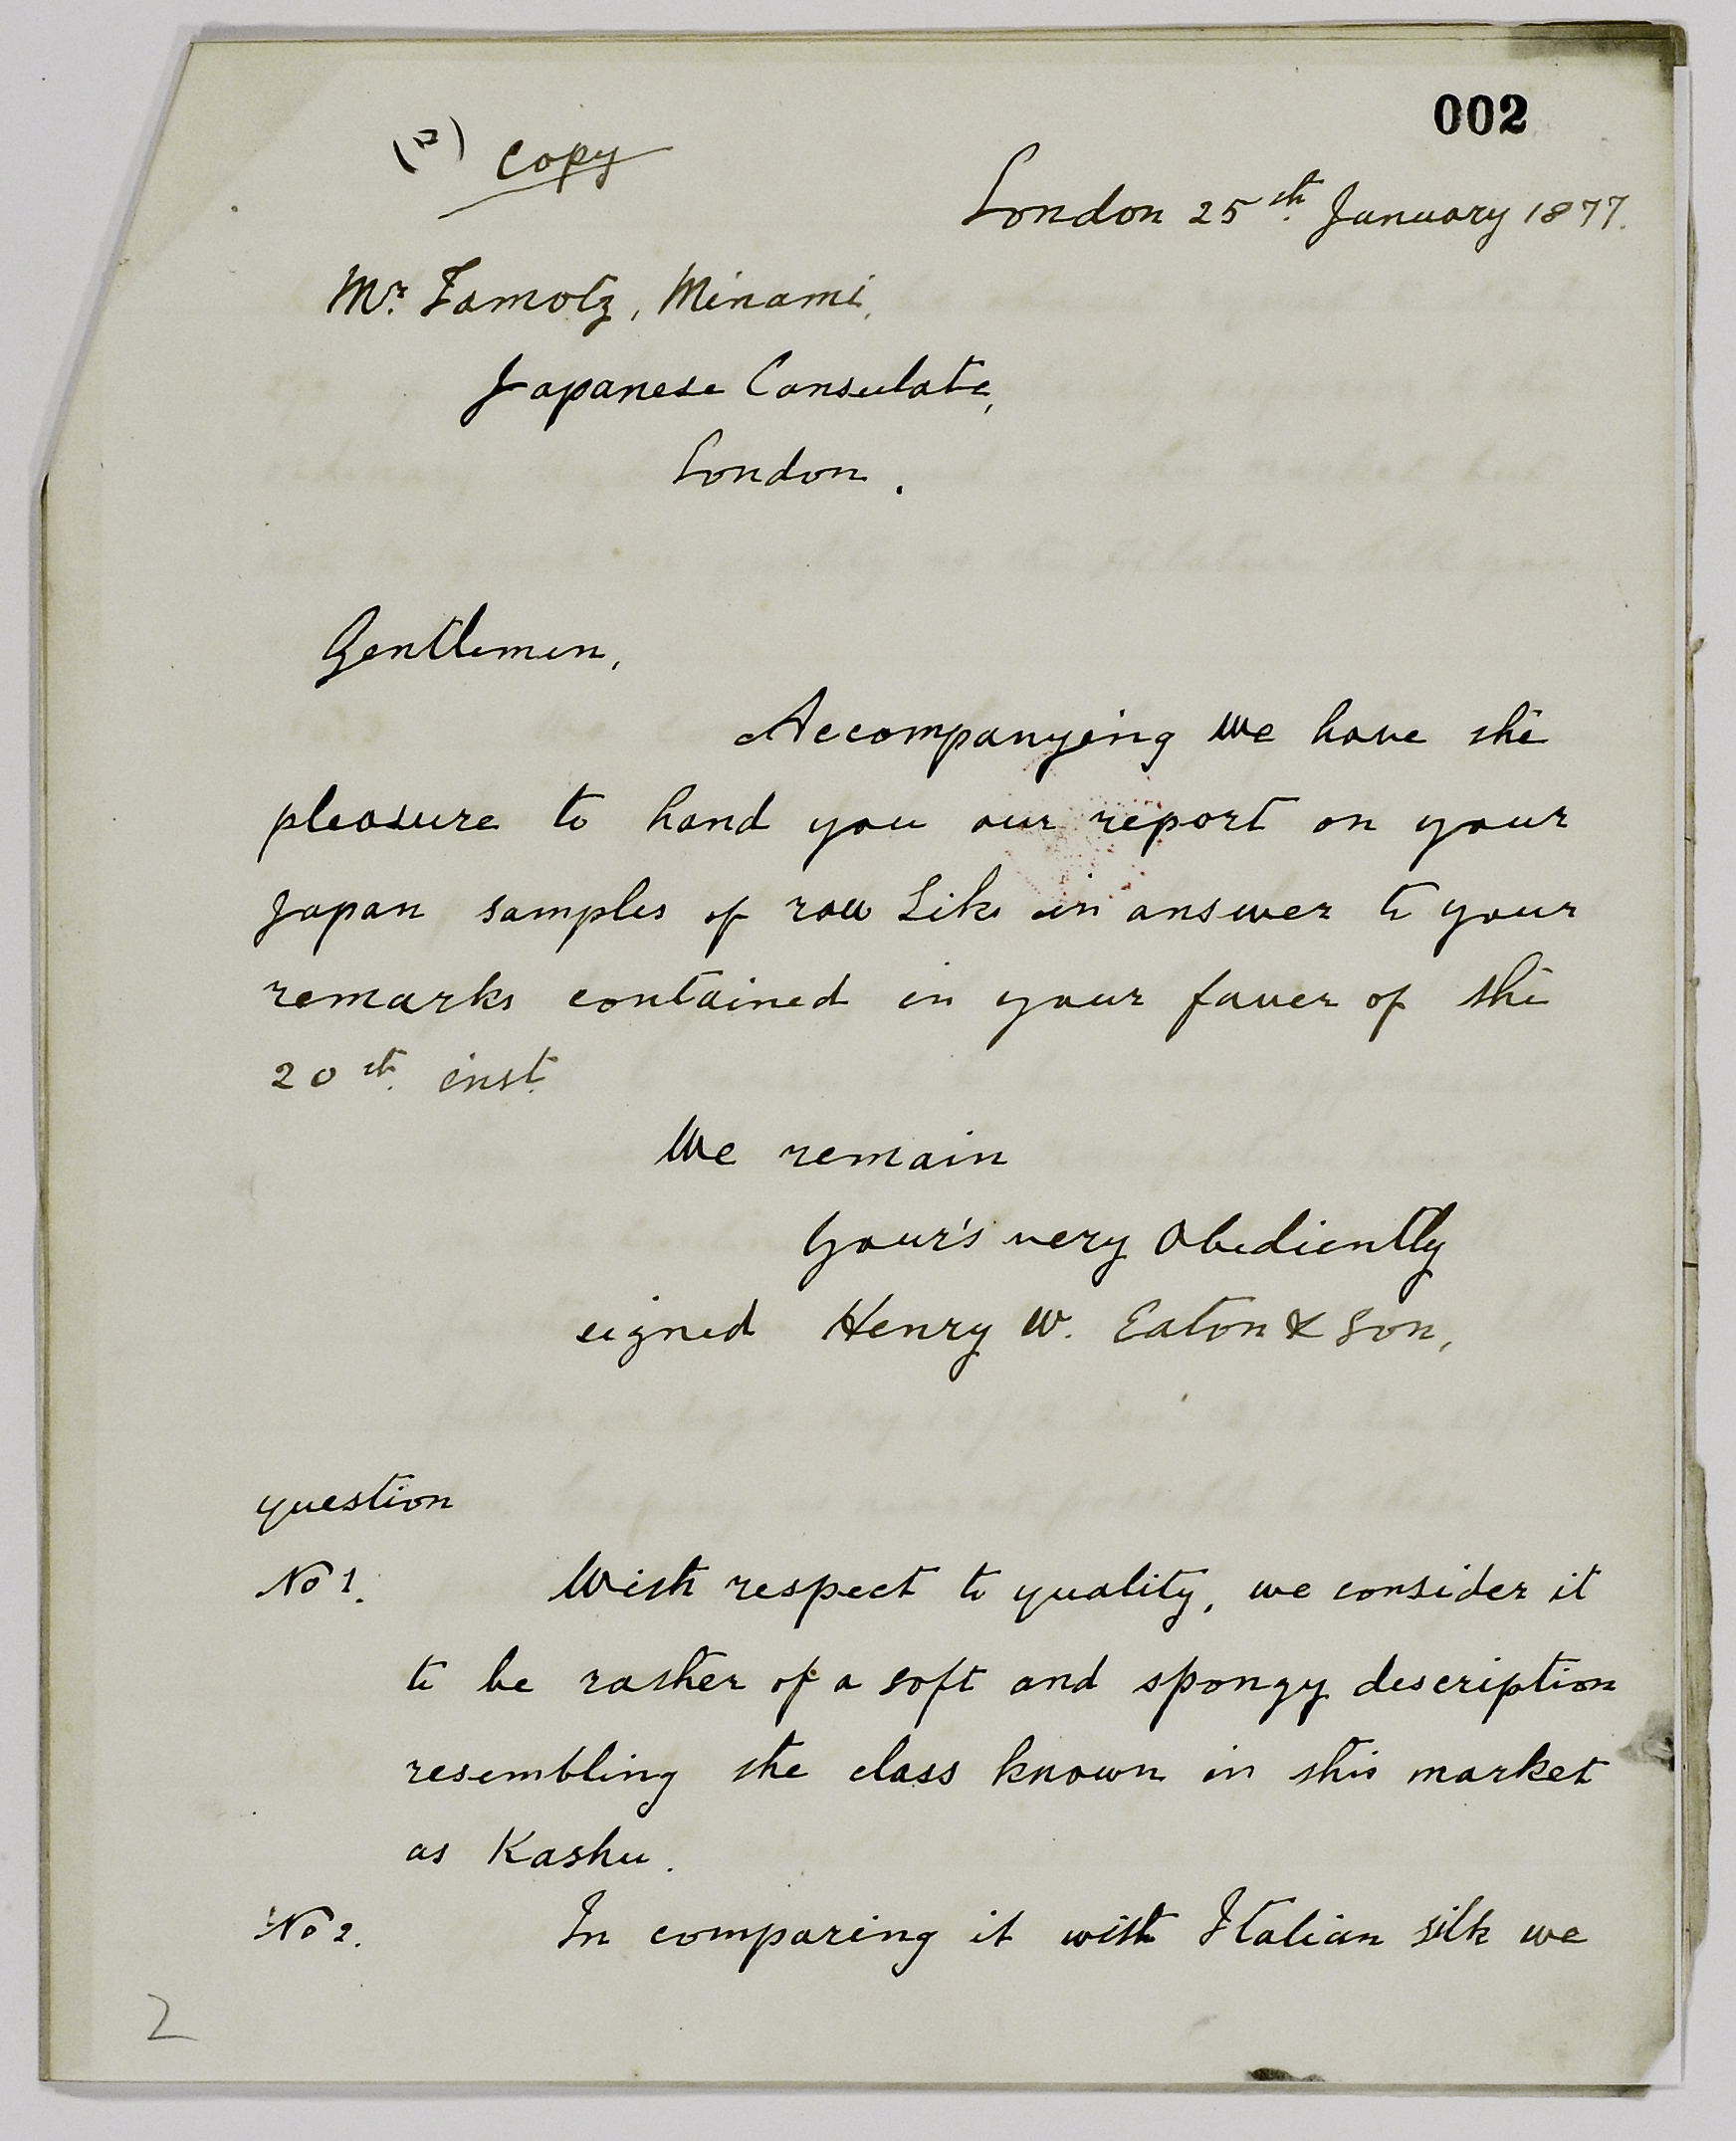 002
(2) Copy
London 25th January 1877.
Mr. Tamotz, Minami,
Japanese Consulate,
London.
Gentlemen,
Accompanying we have the
pleasure to hand you our report on your
Japan samples of raw Silk in answer to your
remarks contained in your faver of the
20th. inst.
We remain
Your's very Obediently
signed Henry W. Eaton & Son,
question
No 1. With respect to quality, we consider it
to be rather of a soft and spongy description
resembling the class known in this market
as Kashu.
No 2. In comparing it with Italian silk we
2